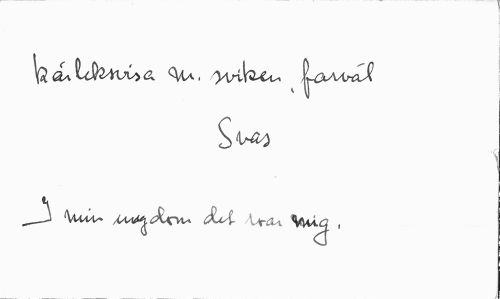 kärleksvisa m. sviken, farväl
Svas
I min ungdom det var mig.